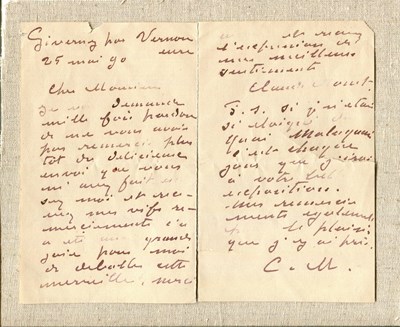 Giverny par Vernon
eure
25 mai 90
Cher Monsieur
Je vous demande
mille fois pardon
de ne vous avoir
pas remercié plus
tôt du délicieux
envoi que vous
m'avez fait
moi et rece-
vez mes vifs re-
merciements ç'a
a été une grande
joie pour moi
de déballer cette
merveille, merci
et recevez
l'expression de
mes meilleurs
sentiments
Claude Monet.
P.S. si j'étais
si éloigné du
quai Malaquais
c'est chaque
jour que j'irais
à votre belle
exposition.
mes remercie-
ments également
le plaisir
que j'y ai pris.
C. M.